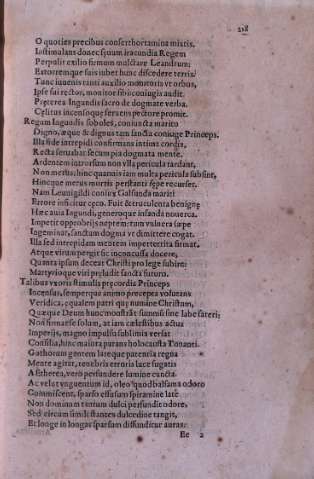 218
O quoties precibus conserthortamina mixtis,
Instimulans donec spuum iracundia Regem
Perpulit exilio firmum mulctare Leandrum;
Extorremque suis iubet hunc discedere terris;
Tunc iuuenis tanti auxilio monitoris vt orbus,
Ipse sui rector, monitor sibi coniugis audit.
Præterea Ingundis sacro de dogmate verba.
Cælitus incensoque seruens pectore promit.
Regum Ingundis soboles, coniuncta marito
Digno, æque & dignus tam sancta coniuge Princeps.
Illa fide intrepidi confirmans intima cordis,
Recta seruabat secum pia dogmata mente.
Ardentem introrsum non vlla pericula tardant,
Non mestus; hinc quamuis iam multa pericula subsint,
Hincque metus mortis perstanti sæpe recurset.
Nam Leuuigildi coniux Galsunda mariti
Errore inficitur cæco. Fuit & truculenta benigne
Hæc auia Ingundi, generoque infanda nouerca.
Impetit opprobrijs neptem: tum vulnera sæpe
Ingeminat, sanctum dogma vt demittere cogat.
Illa sed intrepidam mentem imperterrita firmat,
Atque virum pergit sic inconcussa docere,
Quanta ipsum deceat Christi pro lege subire;
Martyrioque viri præludit sancta futuro.
Talibus vxoris stimulis præcordia Princeps
Incensus, semperque animo præcepta volutans
Veridica, equalem patri quę numine Christum,
Quæque Deum hunc monstrāt fuamissine labe fateri;
Non firmat se solum, at iam cælestibus actus
Imperijs, magno impulsu sublimia versat
Consilia, hinc maiora parans holocausta Tonanti.
Gothorum gentem lateque patentia regna
Mente agitat, tenebris erroris luce fugatis
Aetherea, verò perfundere lumine cuncta.
Ac velut vnguentum id, oleo quod balsama odoro
Commiscent, sparso effusum spiramine latè
Non dominam tantum dulci perfundit odore,
Sed circum simili stantes dulcedine tangit,
Et longe in longas sparsum diffunditur auras:
Ee 2